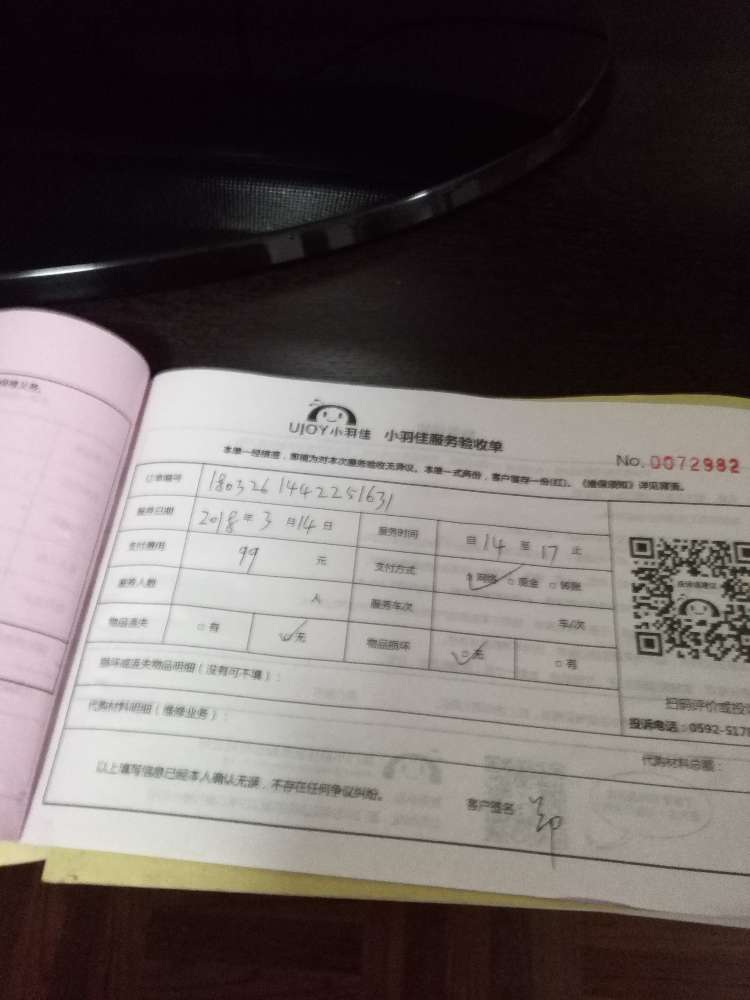 UJOY小羽佳 小羽佳服务验收单
No. 0072982
本单一经填签，即视为对本次服务验收无异议。本单一式两份，客户留存一份(红)。《维保须知》详见背面。
订单编号 180326 1442251631
服务日期 2018年3月14日 服务时间 自14至17止
支付费用 99 元 支付方式 网络 现金 转账
服务人数 人 服务车次 车/次
物品丢失 有 无 物品损坏 无 有
损坏或丢失物品明细（没有可不填）：
代购材料明细（维修业务）：
扫码评价或投
投诉电话：0592-517
代购材料总额：
以上填写信息已经本人确认无误，不存在任何争议纠纷。 客户签名：